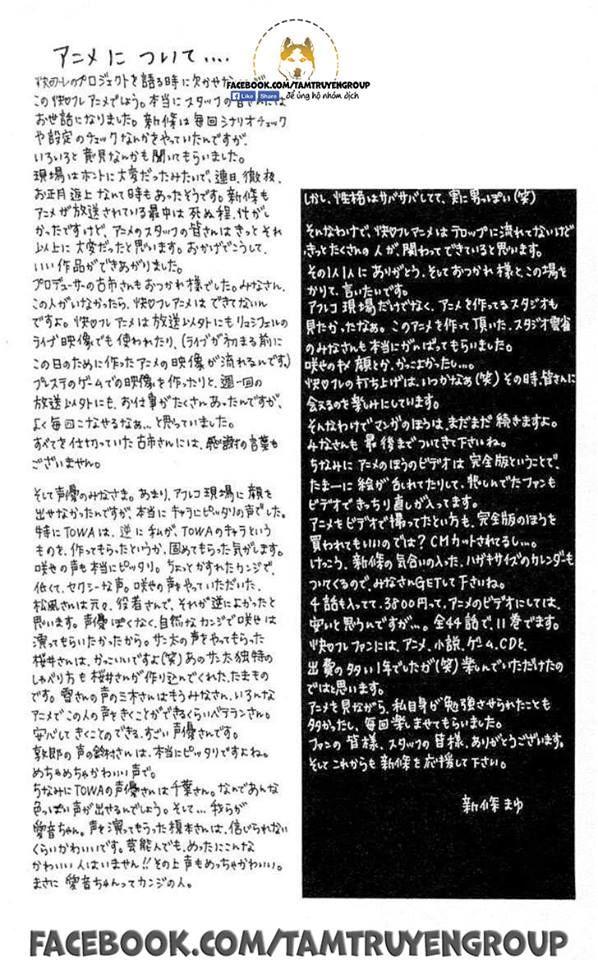 アニメについて....
FACEBOOK.COM/TAMTRUYENGROUP
Like Share để ủng hộ nhóm dịch
快感♡フレのプロジェクトを語る時に欠かせない
この快感♡フレアニメでしょう。本当にスタッフの皆さんには
お世話になりました。新條は毎回シナリオチェック
や設定のチェックなんかをやっていたんですが、
いろいろと意見なんかも聞いてもらいました。
現場はホントに大変だったみたいで、連日、徹夜、
お正月返上なんて時もあったそうです。新條も
アニメが放送されている最中は死ぬ程、忙がし
かったですけど、アニメのスタッフの皆さんはきっとそれ
以上に大変だったと思います。おかげでこうして、
いい作品ができあがりました。
プロデューサーの古市さんもおつかれ様でした。みなさん、
この人がいなかったら、快♡フレアニメはできてないん
ですよ。快♡フレアニメは放送以外にもリュシフェルの
ライブ映像でも使われたり、(ライブが初まる前に
この日のために作ったアニメの映像が流れるんです。)
プレステのゲームでの映像を作ったりと、週一回の
放送以外にも、お仕事がたくさんあったんですが、
よく毎回こなせるなぁ...と思っていました。
すべてを仕切っていた古市さんには、感謝の言葉も
ございません。
そして声優のみなさま。あまり、アフレコ現場に顔を
出せなかったんですが、本当にキャラにピッタリの声でした。
特にTOWAは、逆に私が、TOWAのキャラという
ものを、作ってもらったというか、固めてもらった気がします。
咲也の声も本当にピッタリ。ちょっとかすれたカンジで、
低くて、セクシーな声。咲也の声をやっていただいた、
松風さんは元々、役者さんで、それが逆によかったと
思います。声優ぽくなく、自然なカンジで咲也は
演ってもらいたかったから。サン太の声をやってもらった
桜井さんは、かっこいいですよ(笑)あのサン太独特の
しゃべり方も桜井さんが作り込んでくれた、たまもの
です。雪さんの声の三木さんはもうみなさん、いろんな
アニメでこの人の声をきくことができるくらいベテランさん。
安心してきくことのできる、すごい声優さんです。
敦郎の声の鈴村さんは、本当にピッタリですよね。
めちゃめちゃかわいい声で。
ちなみにTOWAの声優さんは千葉さん。なんであんな
色っぽい声が出せるんでしょう。そして...我らが
愛音ちゃん。声を演ってもらった榎本さんは、信じられない
くらいかわいいです。芸能人でも、めったにこんな
かわいい人はいません!!その上声もめっちゃかわいい。
まさに愛音ちゃんってカンジの人。
しかし、性格はサバサバしてて、実に男っぽい(笑)
そんなわけで、快♡フレアニメはテロップに流れてないけど、
きっとたくさんの人が、関わってできていると思います。
その1人1人にありがとう、そしておつかれ様と、この場を
かりて、言いたいです。
アフレコ現場だけでなく、アニメを作ってるスタジオも
見たかったなぁ。このアニメを作って頂いた、スタジオ雲雀
のみなさんも本当にがんばってもらいました。
咲也のキメ顔とか、かっこよかったし...。
快♡フレの打ち上げは、いつかなぁ(笑)その時、皆さんに
会えるのを楽しみにしています。
そんなわけでマンガのほうは、まだまだ続きますよ。
みなさんも最後までついてきて下さいね。
ちなみにアニメのほうのビデオは完全版ということで、
たまーに絵が乱れてたりして、悲しんでたファンも
ビデオできっちり直しが入ってます。
アニメをビデオで撮ってたという方も、完全版のほうを
買われてもいいのでは?CMカットされてるし...。
けっこう、新條の気合いの入った、ハガキサイズのカレンダーも
ついてくるので、みなさんGETして下さいね。
4話も入ってて、3800円って、アニメのビデオにしては、
安いと思うんですが...。全44話で、11巻でます。
快♡フレファンには、アニメ、小説、ゲーム、CDと、
出費の多い1年でしたが(笑)楽しんでいただけたの
ではと思います。
アニメを見ながら、私自身が勉強させられたことも
多かったし、毎回楽しませてもらいました。
ファンの皆様、スタッフの皆様、ありがとうございます。
そしてこれからも新條を応援して下さい。
新條まゆ
FACEBOOK.COM/TAMTRUYENGROUP